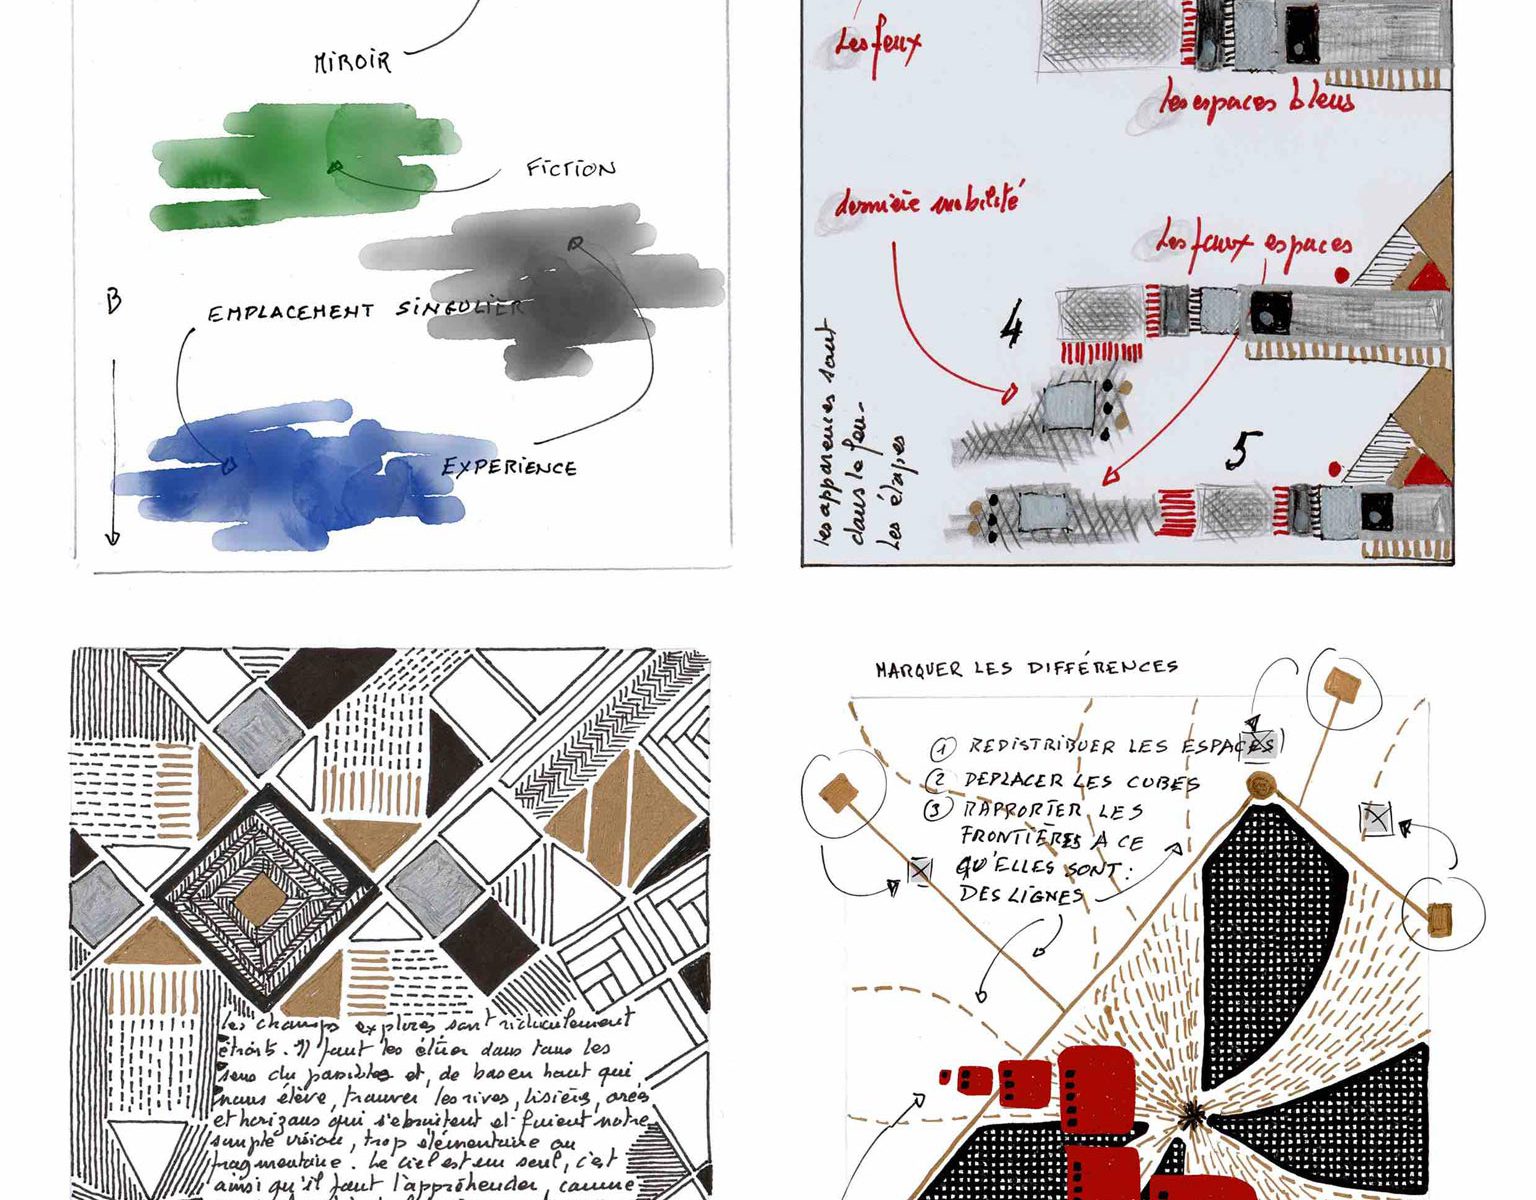 MIROIR
FICTION
B
EMPLACEMENT SINGULIER
EXPERIENCE
Les feux
les espaces bleus
dernière mobilité
Les faux espaces
4
5
les apparences sont
dans le feu-
Les étapes
les champs explorés sont ridiculement
étroits. Il faut les étirer dans tous les
sens du possible et, de bas en haut qui
nous élève, trouver les rives, lisières, orées
et horizons qui s'ébruitent et fuient notre
simple vision, trop élémentaire ou
fragmentaire. Le ciel est un seul, c'est
ainsi qu'il faut l'appréhender, comme
MARQUER LES DIFFÉRENCES
1 REDISTRIBUER LES ESPACES
2 DEPLACER LES CUBES
3 RAPPORTER LES
FRONTIÈRES A CE
QU'ELLES SONT :
DES LIGNES